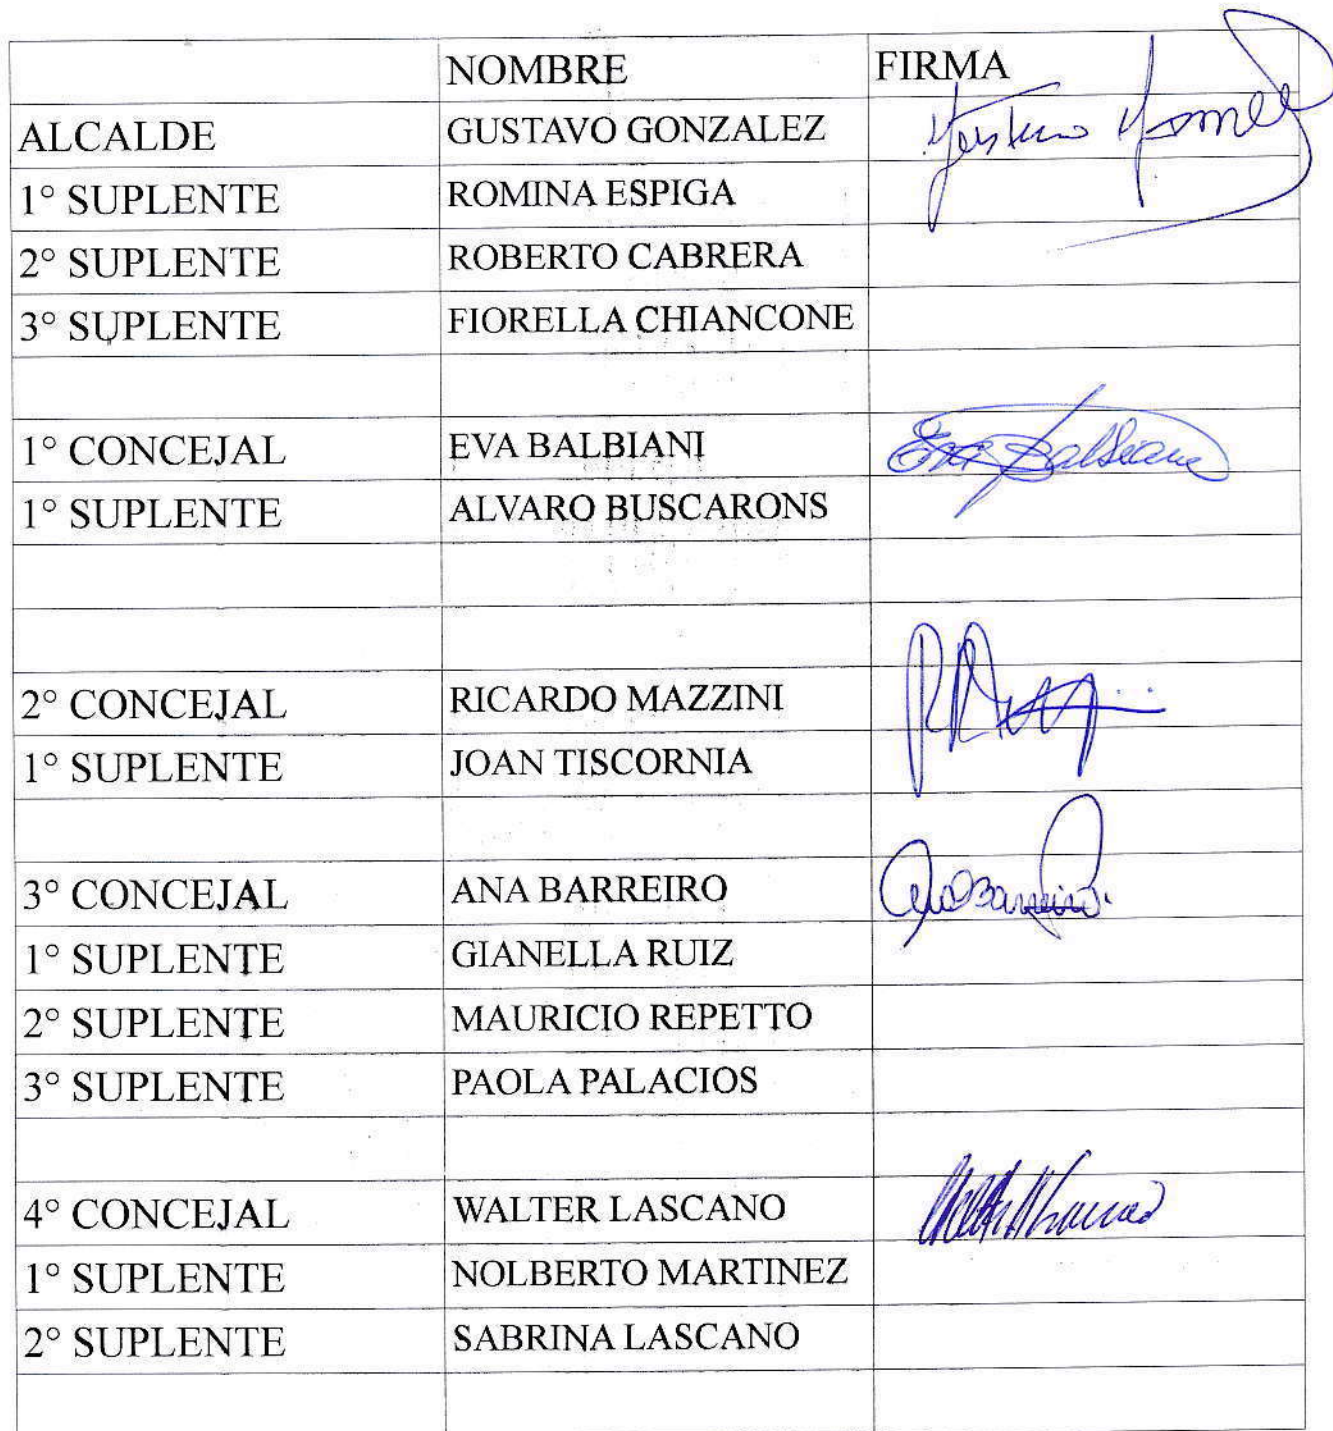 NOMBRE FIRMA
ALCALDE GUSTAVO GONZALEZ
1° SUPLENTE ROMINA ESPIGA
2° SUPLENTE ROBERTO CABRERA
3° SUPLENTE FIORELLA CHIANCONE
1° CONCEJAL EVA BALBIANI Eva Balbiani
1° SUPLENTE ALVARO BUSCARONS
2° CONCEJAL RICARDO MAZZINI
1° SUPLENTE JOAN TISCORNIA
3° CONCEJAL ANA BARREIRO Ana Barreiro.
1° SUPLENTE GIANELLA RUIZ
2° SUPLENTE MAURICIO REPETTO
3° SUPLENTE PAOLA PALACIOS
4° CONCEJAL WALTER LASCANO
1° SUPLENTE NOLBERTO MARTINEZ
2° SUPLENTE SABRINA LASCANO